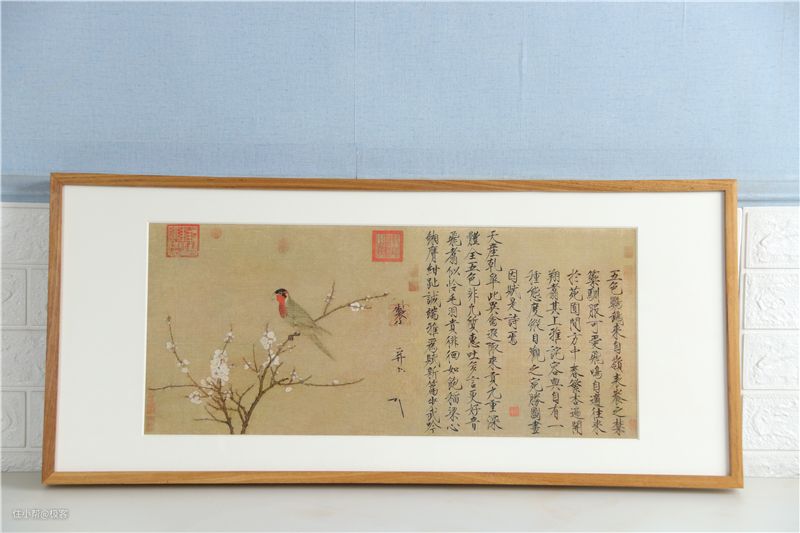 五色鸚鵡來自嶺表養之禁
籞馴服可愛飛鳴自適往來
於苑囿間方中春繁杏遍開
翔翥其上雅詫容與自有一
種態度縱目觀之宛勝圖畫
因賦是詩焉
天產乾皋此異禽遐陬來貢九重深
體全五色非凡質惠吐多言更好音
飛翥似憐毛羽貴徘徊如飽稻粱心
緗膺紺趾誠端雅為賦新篇步武吟
住小帮@极客